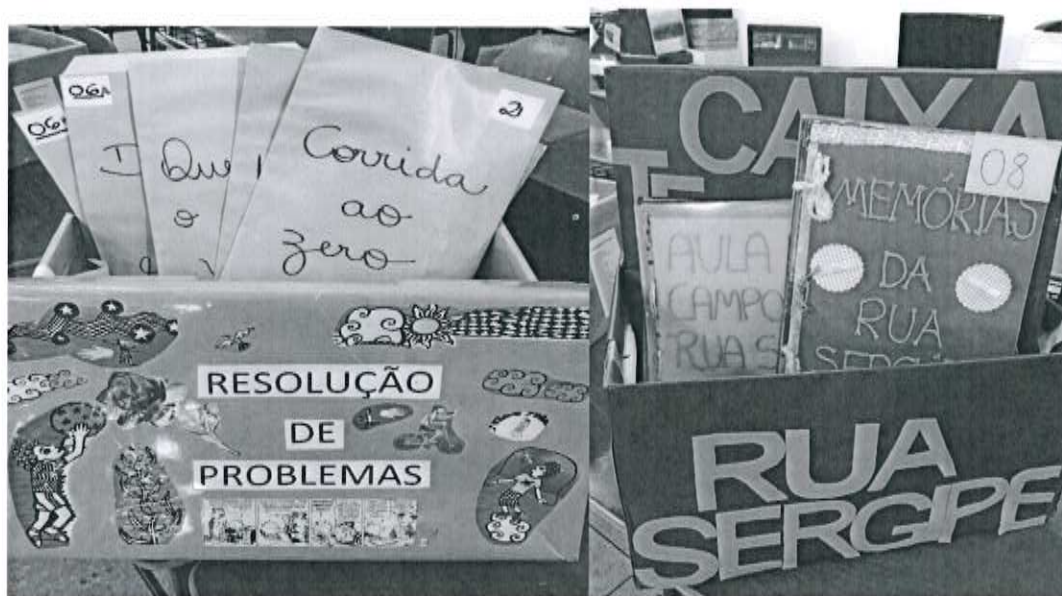 06A
06A
2
I
Que
o
Corrida
ao
zero
RESOLUÇÃO
DE
PROBLEMAS
CAIXA
TE
08
MEMÓRIAS
DA
RUA
AULA
CAMPO
RUAS
RUA
SERGIPE